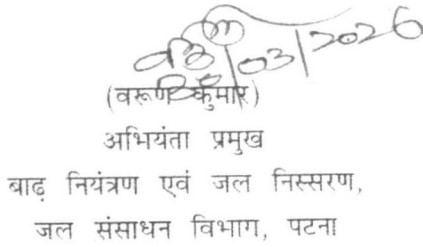 /03/2026
(वरूण कुमार)
अभियंता प्रमुख
बाढ़ नियंत्रण एवं जल निस्सरण,
जल संसाधन विभाग, पटना